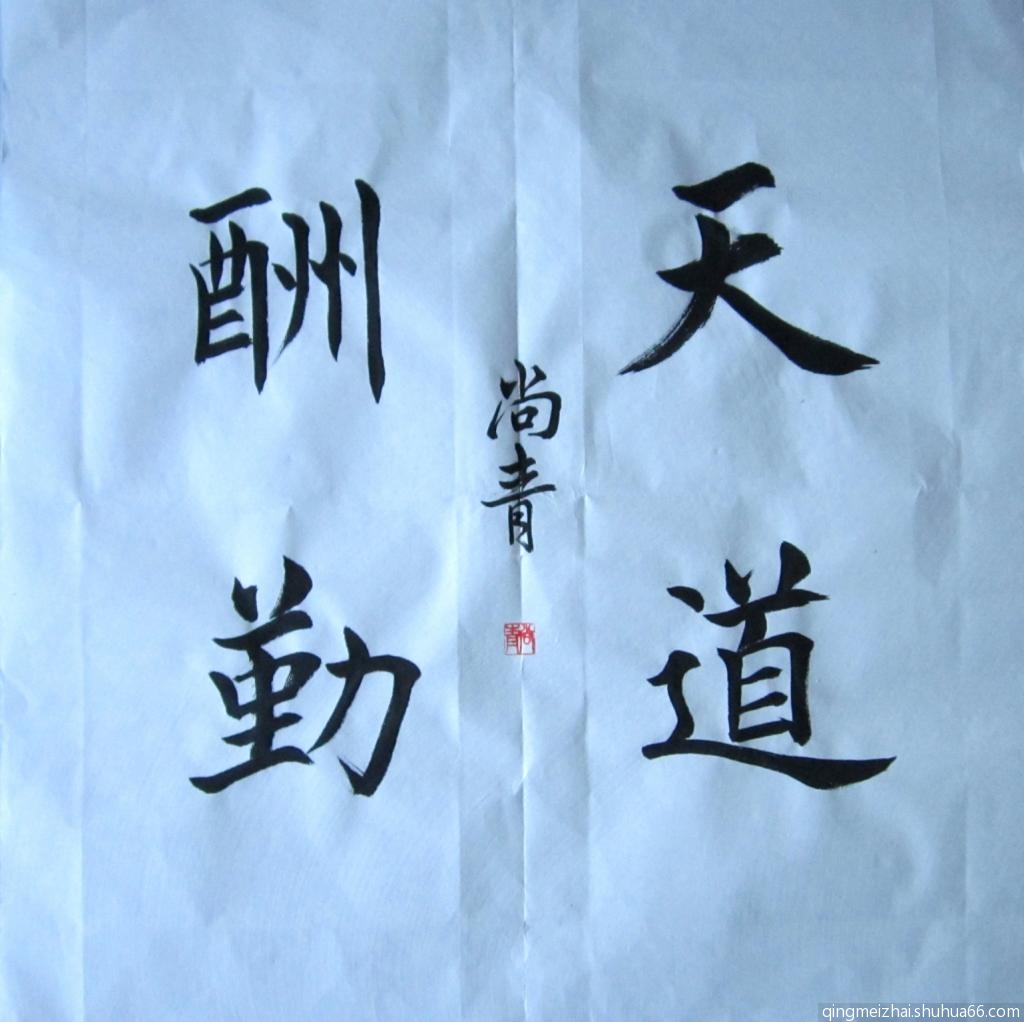 天道
酬勤
尚青
尚青
qingmeizhai.shuhua66.com